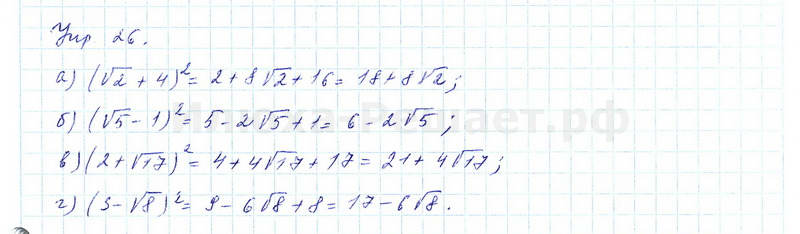 Упр 26.
а) (√2 + 4)² = 2 + 8√2 + 16 = 18 + 8√2;
б) (√5 − 1)² = 5 − 2√5 + 1 = 6 − 2√5;
в) (2 + √17)² = 4 + 4√17 + 17 = 21 + 4√17;
г) (3 − √8)² = 9 − 6√8 + 8 = 17 − 6√8.